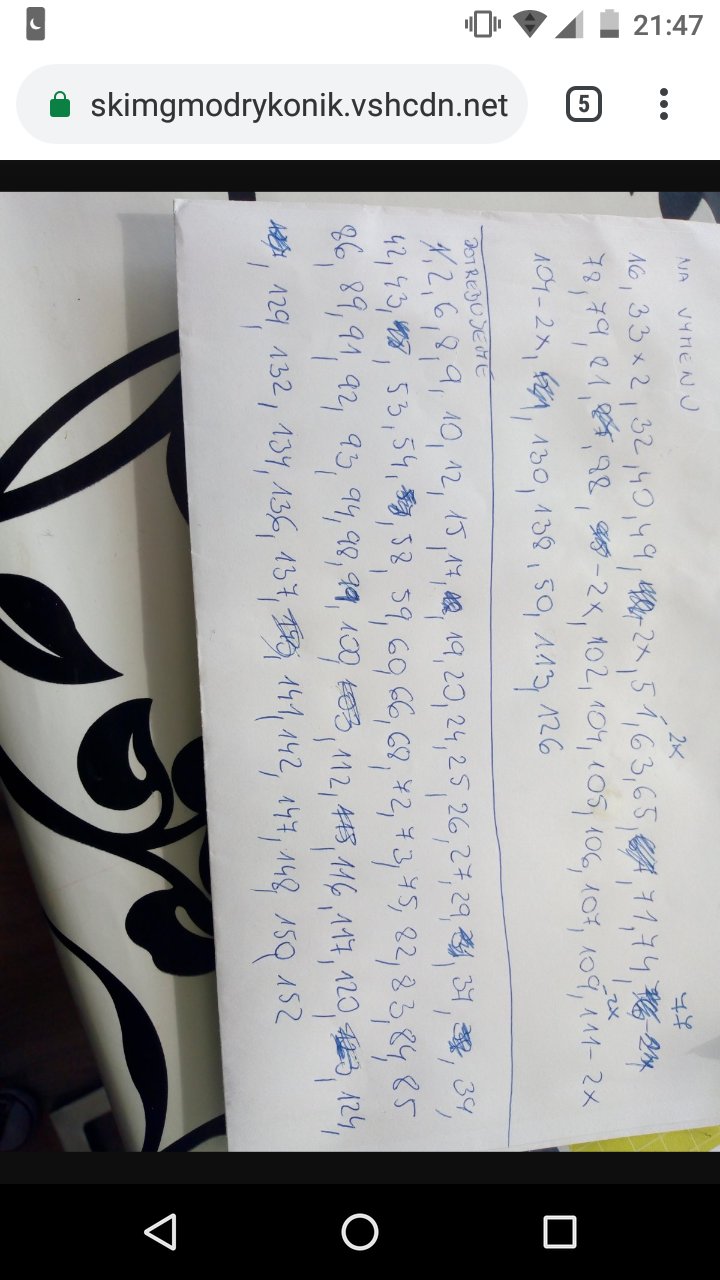 21:47
skimgmodrykonik.vshcdn.net
5
NA VÝMENU
77
2x
16, 33x2, 32, 40, 49, -2x, 51, 63, 65, 71, 74,
78, 79, 81, 98, -2x, 102, 104, 105, 106, 107, 109, 111-2x
-2x
109-2x, 130, 138, 50, 113, 126
POTREBUJEME
1, 2, 6, 8, 9, 10, 12, 15, 17, 19, 20, 24, 25, 26, 27, 29, 34, 39,
42, 43, 53, 54, 58, 59, 60, 66, 68, 72, 73, 75, 82, 83, 84, 85
86, 89, 91, 92, 93, 94, 98, 99, 100, 112, 116, 117, 120, 124,
129, 132, 134, 136, 137, 141, 142, 147, 148, 150, 152